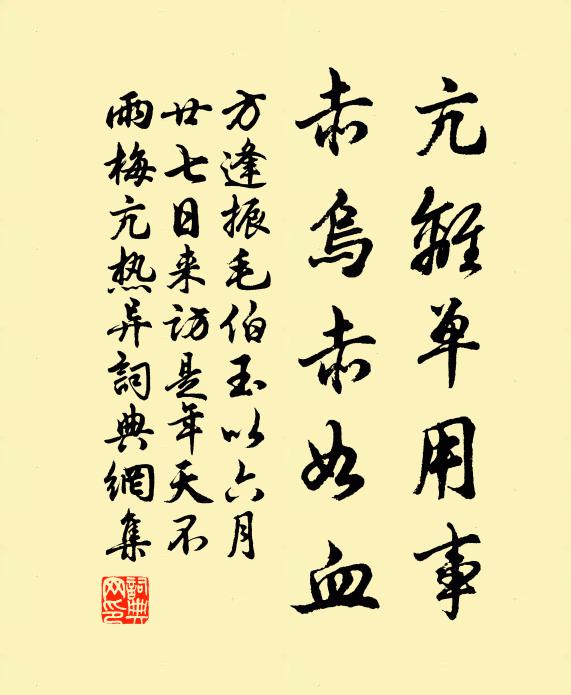 亢離单用事
赤烏赤如血
方逢振毛伯玉以六月
廿七日来访是年天不
雨梅亢热异詞典網集
詞典網印